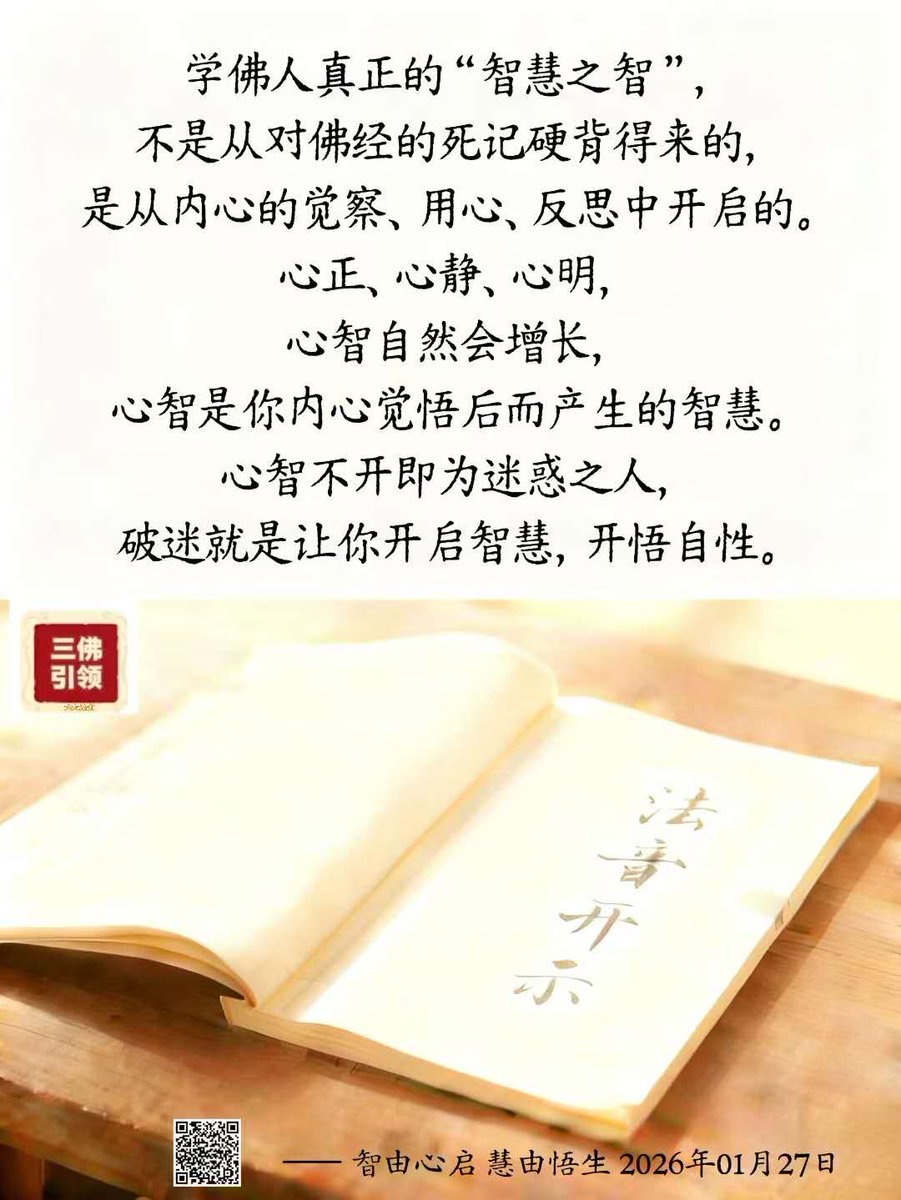 学佛人真正的“智慧之智”，
不是从对佛经的死记硬背得来的，
是从内心的觉察、用心、反思中开启的。
心正、心静、心明，
心智自然会增长，
心智是你内心觉悟后而产生的智慧。
心智不开即为迷惑之人，
破迷就是让你开启智慧，开悟自性。
三佛
引领
法音开示
—— 智由心启 慧由悟生 2026年01月27日